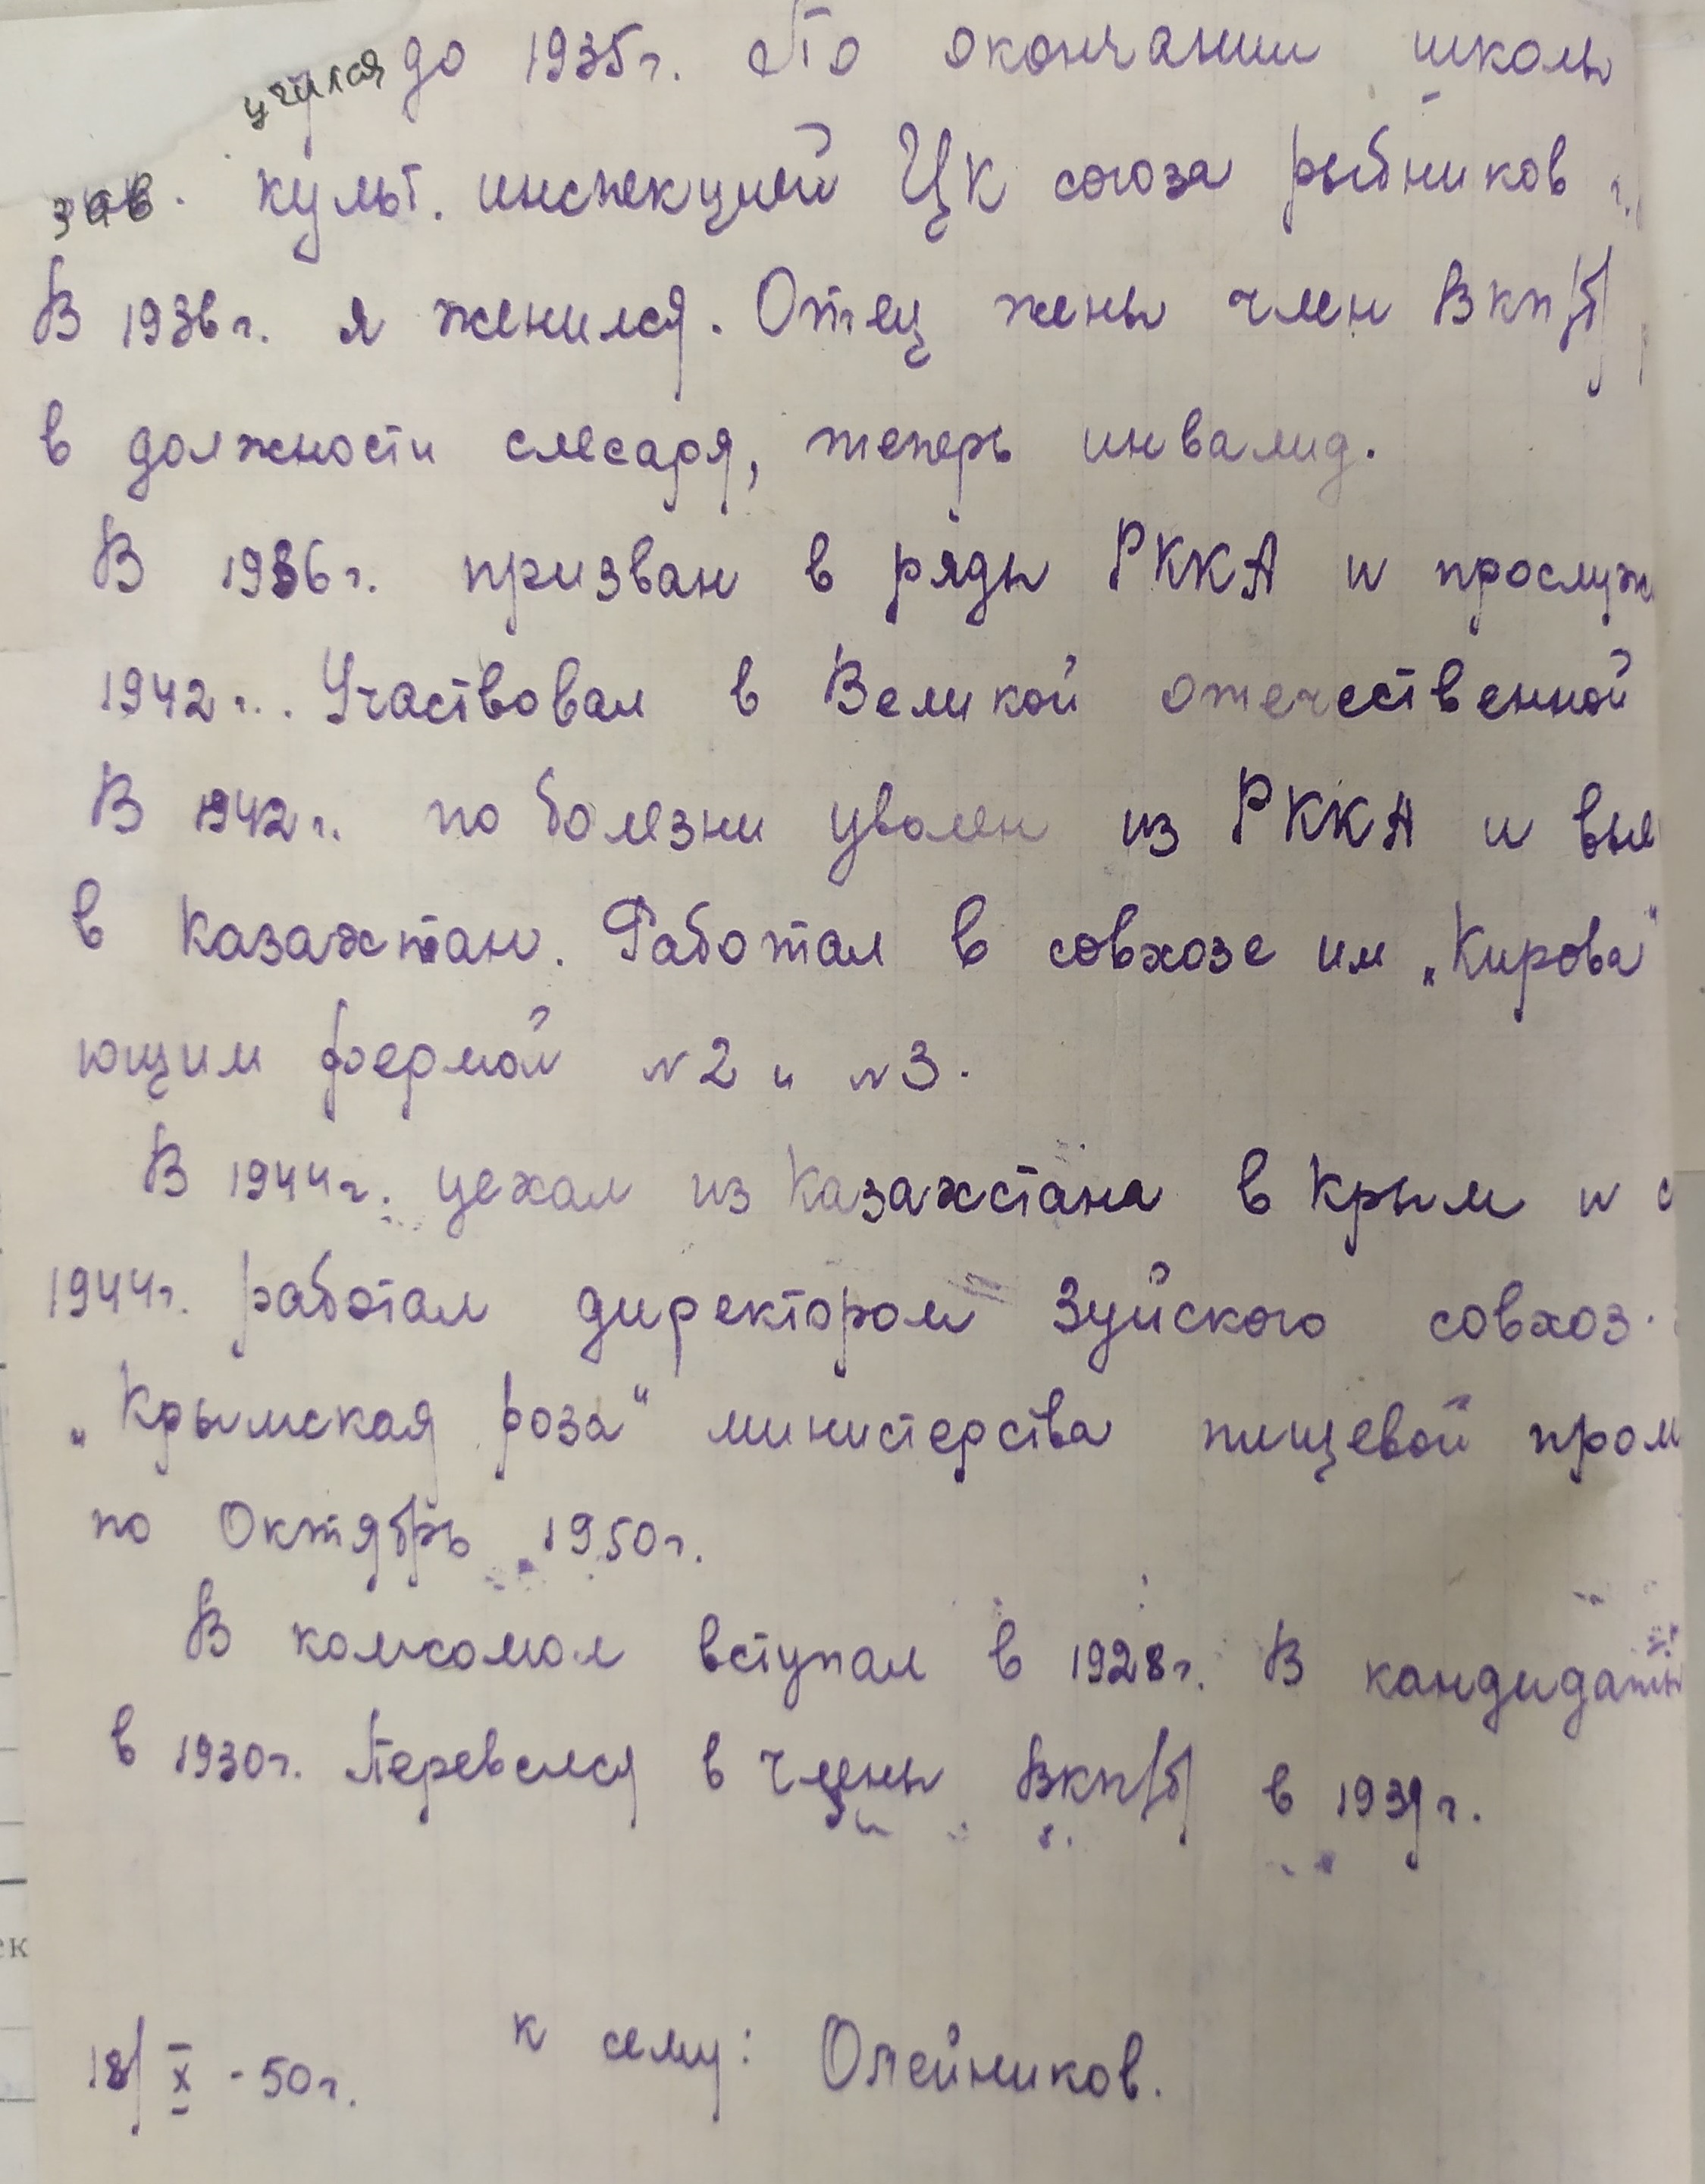 учился до 1935г. По окончании школы
зав. культ. инспекцией ЦК союза рыбников г.
В 1936г. я женился. Отец жены член ВКП/б/
в должности слесаря, теперь инвалид.
В 1936г. призван в ряды РККА и прослуж
1942г.. Участвовал в Великой отечественной
В 1942г. по болезни уволен из РККА и вые
в Казахстан. Работал в совхозе им „Кирова“
ющим фермой N2 и N3.
В 1944г. уехал из Казахстана в Крым и с
1944г. работал директором Зуйского совхоз
„Крымская роза“ министерства пищевой пром
по Октябрь 1950г.
В комсомол вступал в 1928г. В кандидаты
в 1930г. Перевелся в члены ВКП/б/ в 1939г.
18/X-50г. к сему: Олейников.
ек